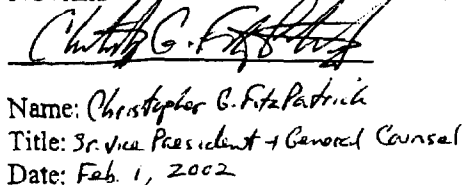 Christoph G. FitzPatrick
Name: Christopher G. FitzPatrick
Title: Sr. Vice President + General Counsel
Date: Feb. 1, 2002